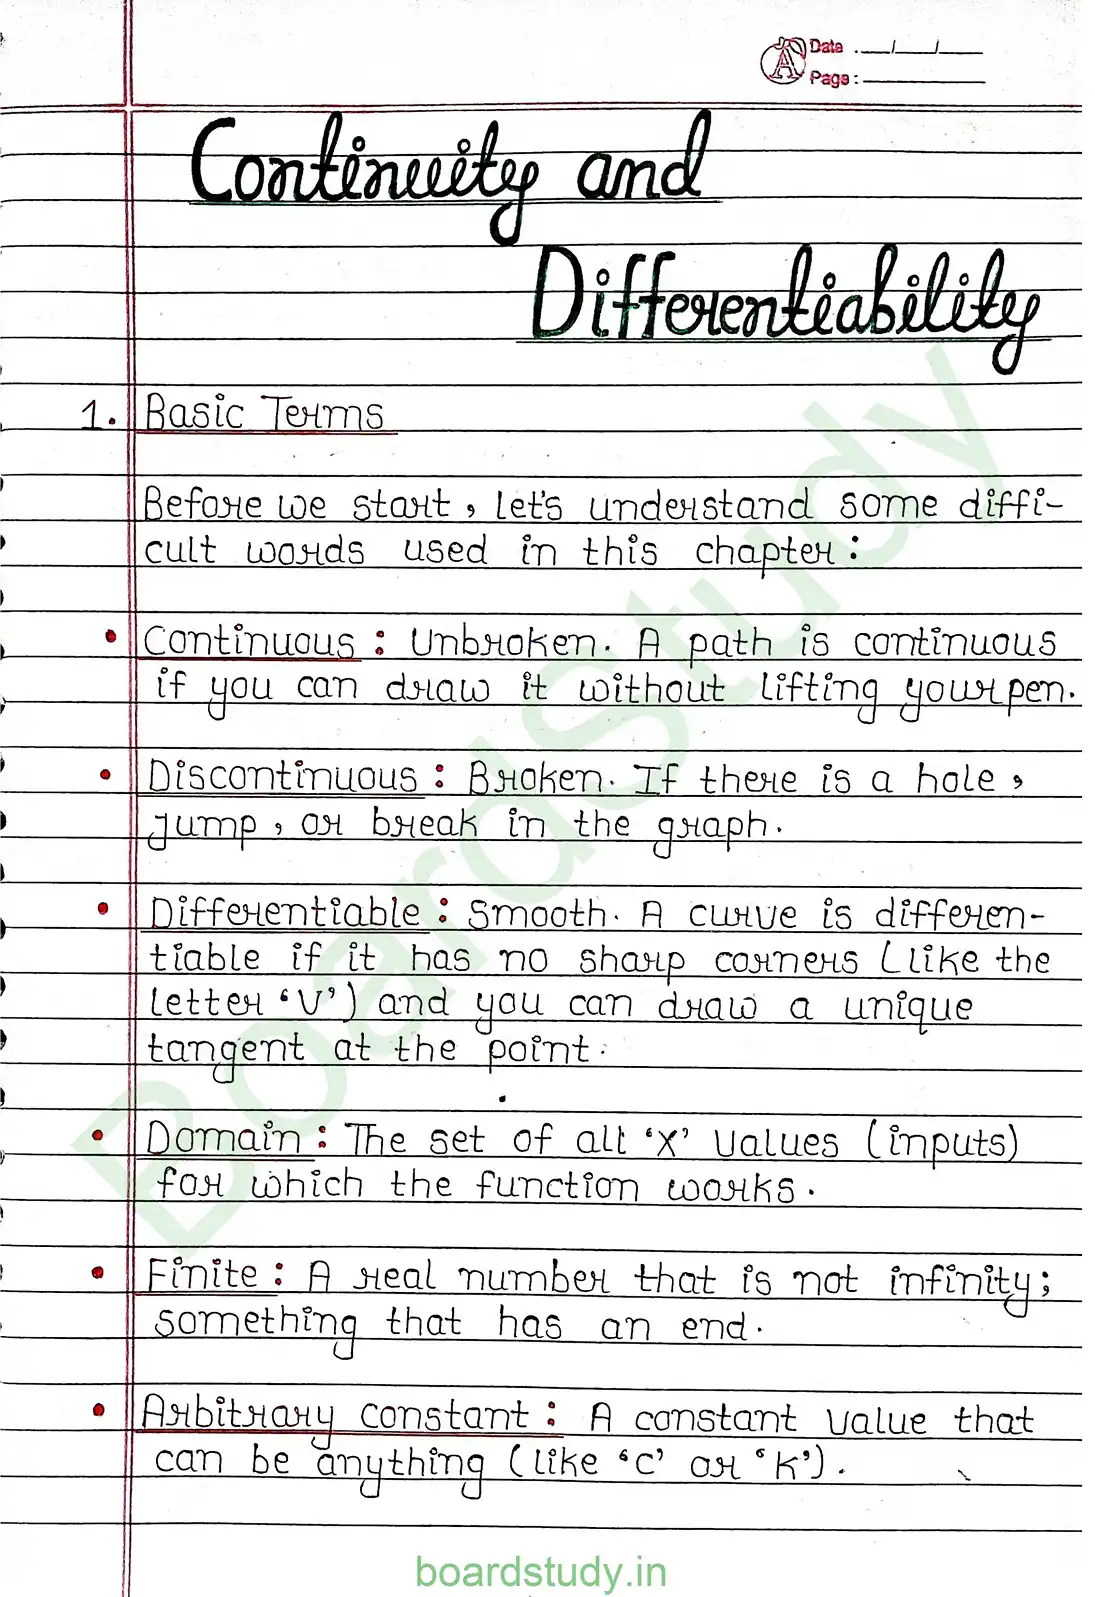 Date . __/__/__
Page: ______
Continuity and
Differentiability
1. Basic Terms
Before we start, let's understand some diffi-
cult words used in this chapter:
• Continuous: Unbroken. A path is continuous
if you can draw it without lifting your pen.
• Discontinuous: Broken. If there is a hole,
jump, or break in the graph.
• Differentiable: Smooth. A curve is differen-
tiable if it has no sharp corners (like the
letter 'V') and you can draw a unique
tangent at the point.
• Domain: The set of all 'x' values (inputs)
for which the function works.
• Finite: A real number that is not infinity;
something that has an end.
• Arbitrary constant: A constant value that
can be anything (like 'C' or 'K').
BoardStudy
boardstudy.in